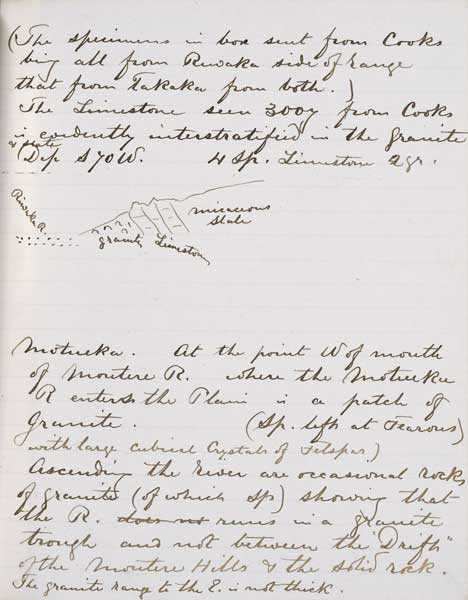 (The specimens in box sent from Cooks
being all from Riwaka side of range
that from Takaka from both.)
The Limestone seen 300y from Cooks
is evidently interstratified in the granite
& slate
Dip S 70 W. 4 Sp. Limestone 2 gr.
Riwaka R.
micaceous
slate
granite Limestone
Motueka. At the point W of mouth
of Moutere R. where the Motueka
R enters the Plain is a patch of
Granite. (Sp. left at Pearsons)
with large cubical Crystals of Felspar.)
Ascending the river are occasional rocks
of granite (of which Sp) showing that
the R. does not runs in a granite
trough and not between the "Drift"
of the Moutere Hills & the solid rock.
The granite range to the E. is not thick.